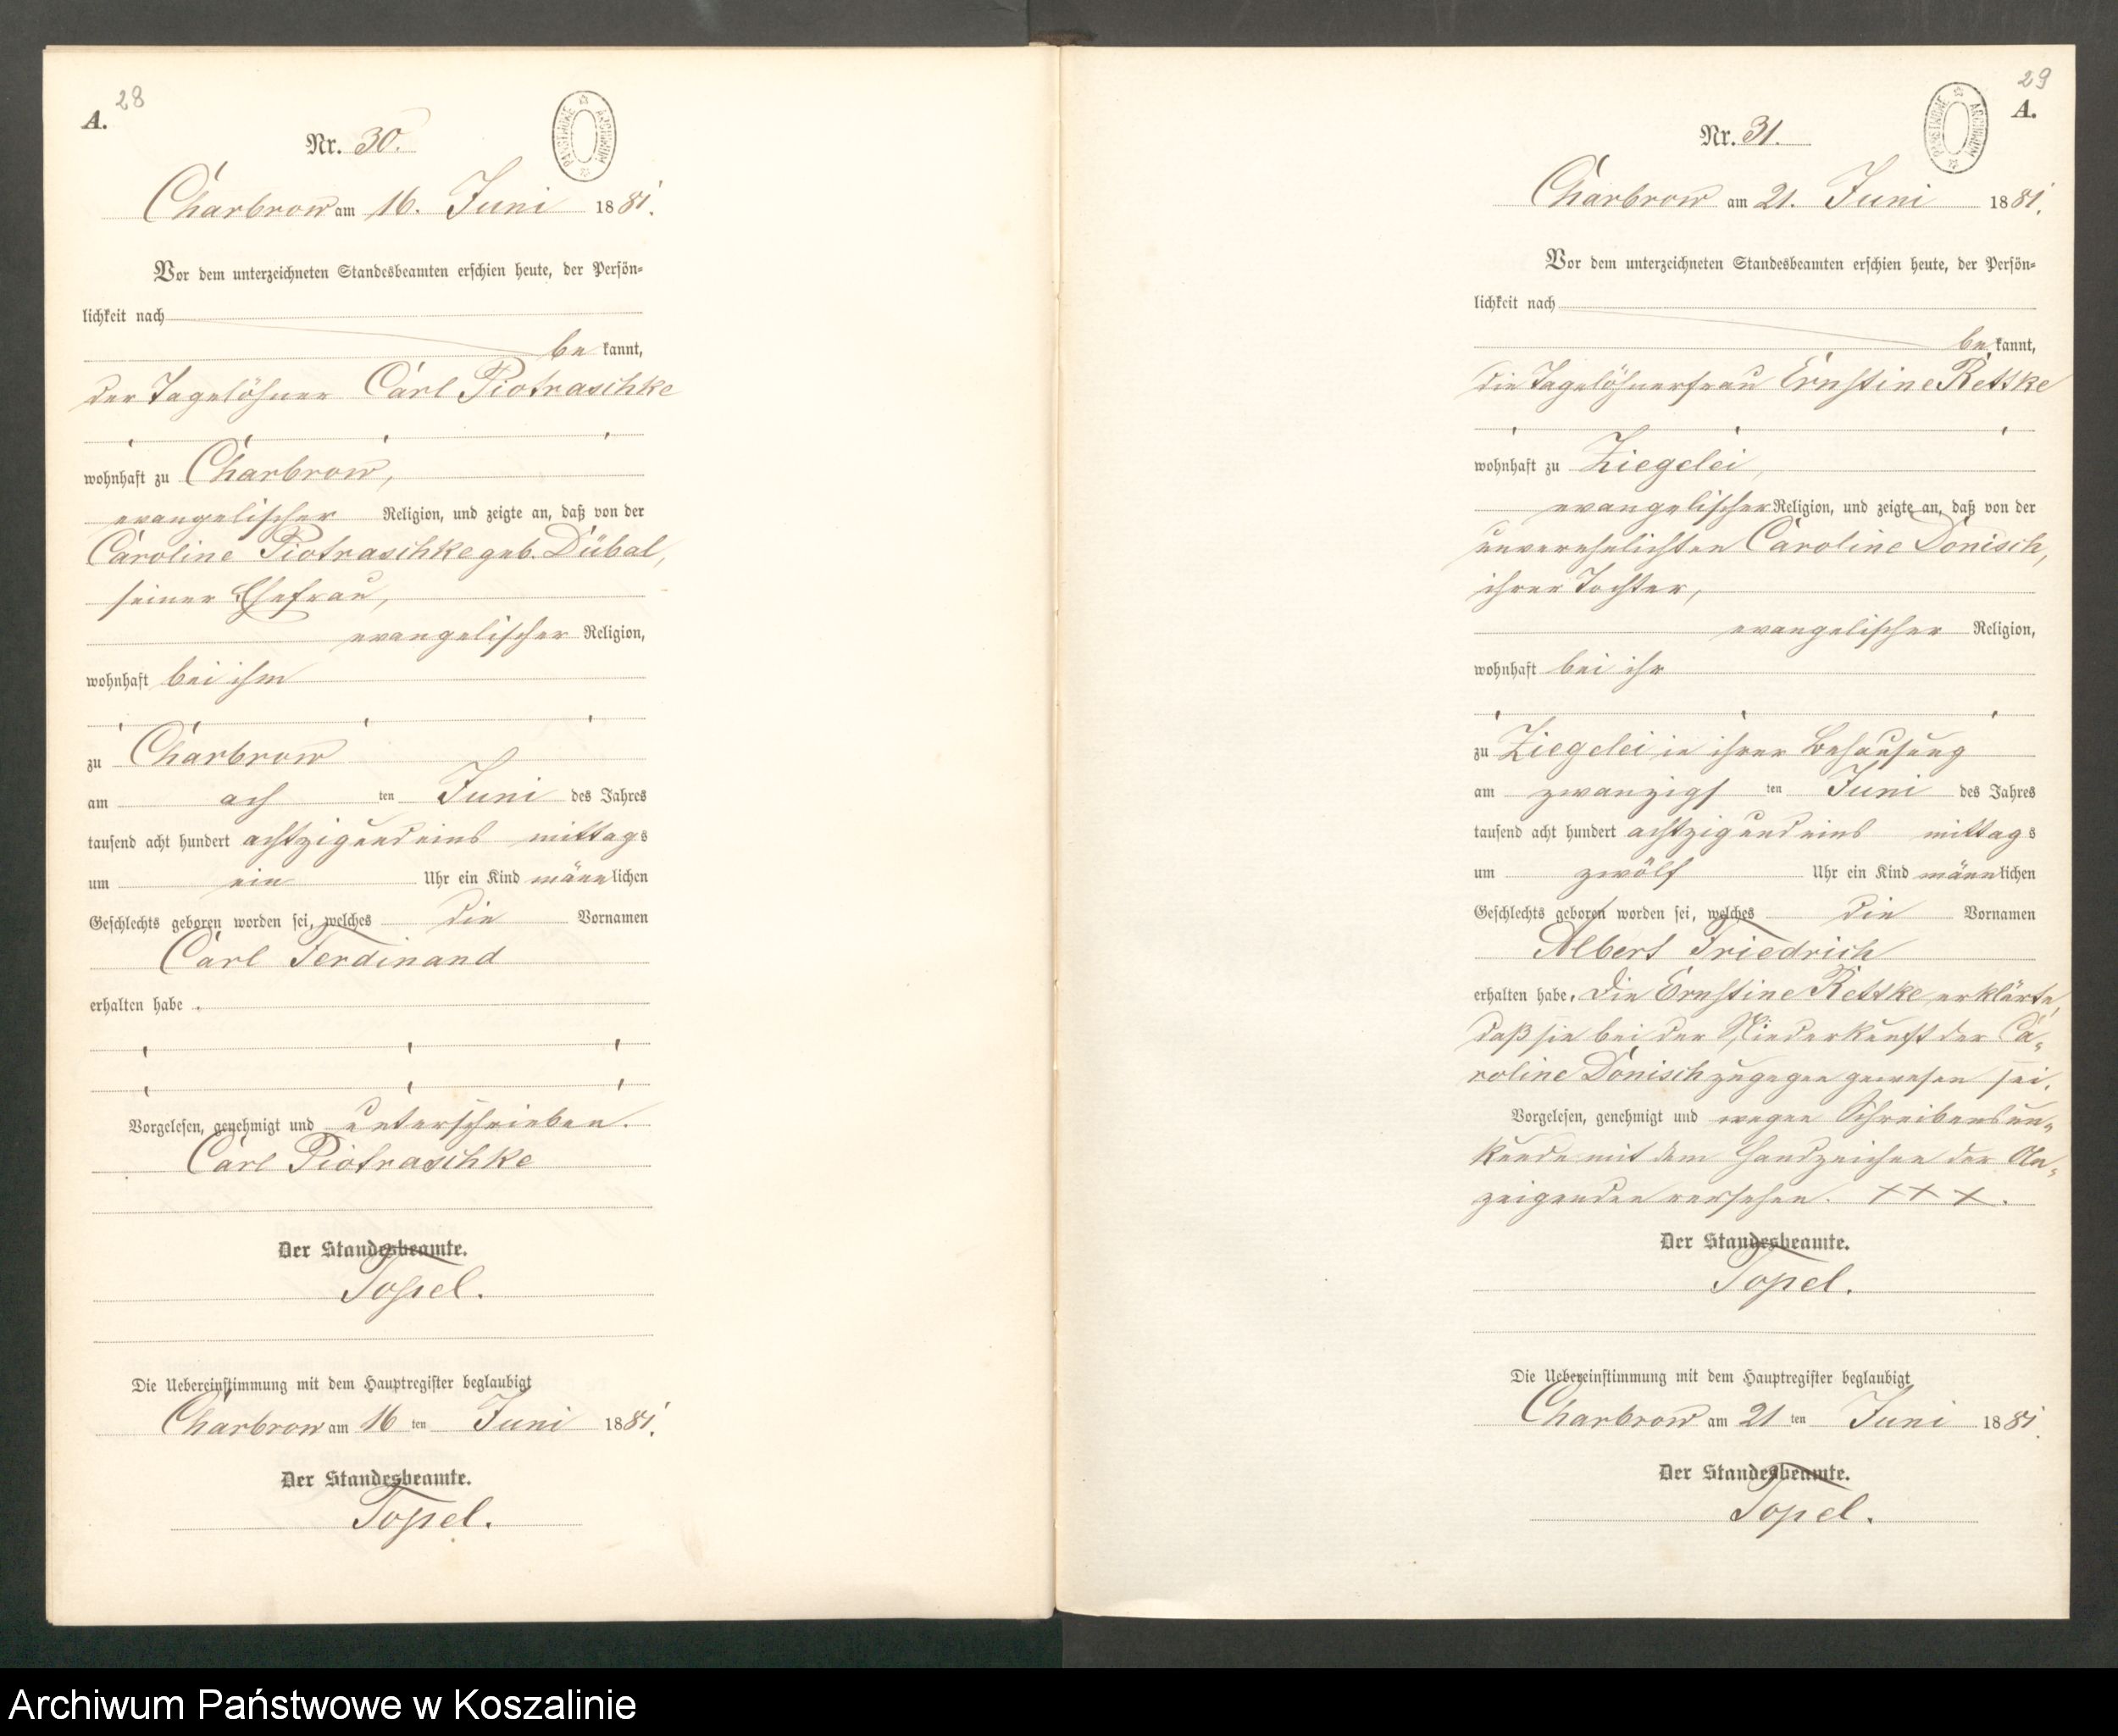 28
A.
Nr. 30.
PAŃSTWOWE ARCHIWUM
Charbrow am 16. Juni 1881.
Vor dem unterzeichneten Standesbeamten erschien heute, der Persön-
lichkeit nach
be kannt,
der Tagelöhner Carl Piotraschke
wohnhaft zu Charbrow,
evangelischer Religion, und zeigte an, daß von der
Caroline Piotraschke geb. Dübal,
seiner Ehefrau,
evangelischer Religion,
wohnhaft bei ihm
zu Charbrow
am ach ten Juni des Jahres
tausend acht hundert achtzig und eins mittags
um ein Uhr ein Kind männlichen
Geschlechts geboren worden sei, welches die Vornamen
Carl Ferdinand
erhalten habe.
Vorgelesen, genehmigt und unterschrieben.
Carl Piotraschke
Der Standesbeamte.
Topel.
Die Uebereinstimmung mit dem Hauptregister beglaubigt
Charbrow am 16 ten Juni 1881.
Der Standesbeamte.
Topel.
29
A.
Nr. 31.
PAŃSTWOWE ARCHIWUM
Charbrow am 21. Juni 1881.
Vor dem unterzeichneten Standesbeamten erschien heute, der Persön-
lichkeit nach
be kannt,
die Tagelöhnerfrau Ernstine Rettke
wohnhaft zu Ziegelei,
evangelischer Religion, und zeigte an, daß von der
unverehelichten Caroline Donisch,
ihrer Tochter,
evangelischer Religion,
wohnhaft bei ihr
zu Ziegelei in ihrer Behausung
am zwanzigs ten Juni des Jahres
tausend acht hundert achtzig und eins mittags
um zwölf Uhr ein Kind männlichen
Geschlechts geboren worden sei, welches die Vornamen
Albert Friedrich
erhalten habe. Die Ernstine Rettke erklärte,
daß sie bei der Niederkunft der Ca-
roline Donisch zugegen gewesen sei.
Vorgelesen, genehmigt und wegen Schreibensun-
kunde mit dem Handzeichen der An-
zeigenden versehen. XXX.
Der Standesbeamte.
Topel.
Die Uebereinstimmung mit dem Hauptregister beglaubigt
Charbrow am 21 ten Juni 1881.
Der Standesbeamte.
Topel.
Archiwum Państwowe w Koszalinie